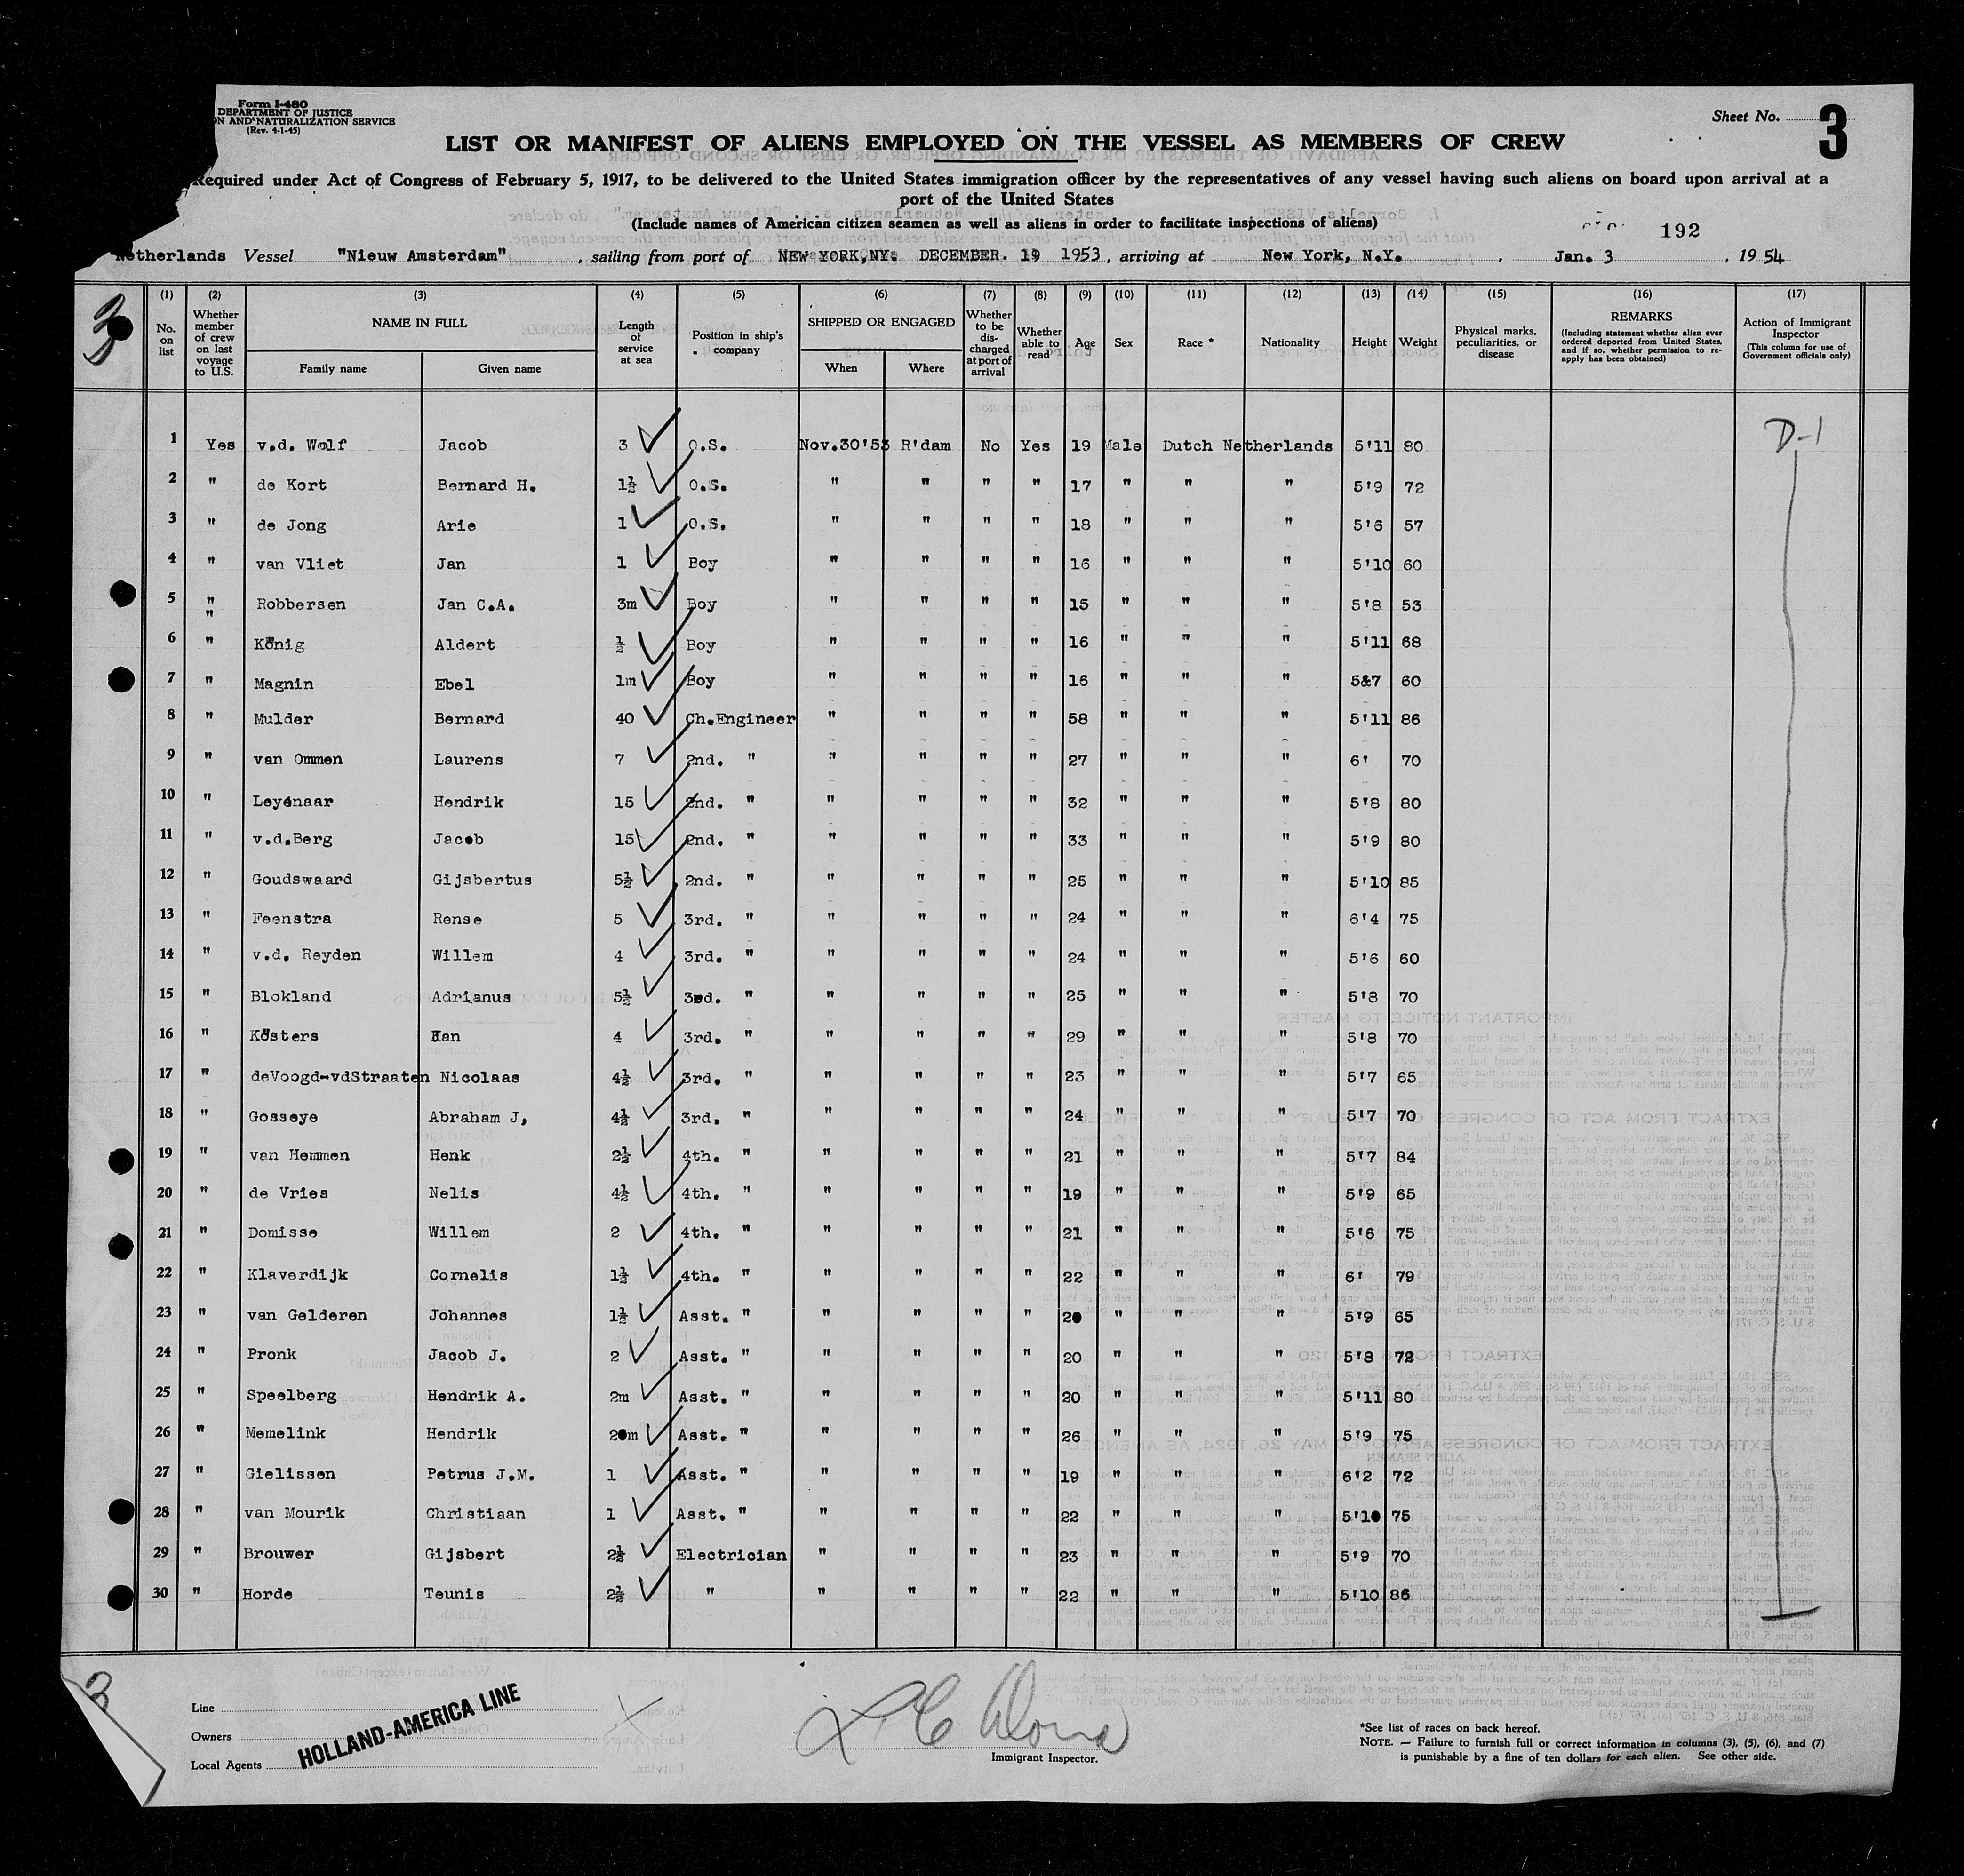 Form I-480
DEPARTMENT OF JUSTICE
AND NATURALIZATION SERVICE
(Rev. 4-1-45)
Sheet No. 3
LIST OR MANIFEST OF ALIENS EMPLOYED ON THE VESSEL AS MEMBERS OF CREW
Required under Act of Congress of February 5, 1917, to be delivered to the United States immigration officer by the representatives of any vessel having such aliens on board upon arrival at a
port of the United States
(Include names of American citizen seamen as well as aliens in order to facilitate inspections of aliens)
192
Netherlands Vessel "Nieuw Amsterdam", sailing from port of NEW YORK,NY. DECEMBER. 19 1953, arriving at New York, N.Y. Jan. 3, 1954
3
(1) No. on list (2) Whether member of crew on last voyage to U.S. (3) NAME IN FULL Family name Given name (4) Length of service at sea (5) Position in ship's company (6) SHIPPED OR ENGAGED When Where (7) Whether to be discharged at port of arrival (8) Whether able to read (9) Age (10) Sex (11) Race * (12) Nationality (13) Height (14) Weight (15) Physical marks, peculiarities, or disease (16) REMARKS (Including statement whether alien ever ordered deported from United States, and if so, whether permission to re-apply has been obtained) (17) Action of Immigrant Inspector (This column for use of Government officials only)
1 Yes v.d. Wolf Jacob 3 O.S. Nov.30'53 R'dam No Yes 19 Male Dutch Netherlands 5'11 80 D-1
2 " de Kort Bernard H. 1½ O.S. " " " " 17 " " " 5'9 72
3 " de Jong Arie 1 O.S. " " " " 18 " " " 5'6 57
4 " van Vliet Jan 1 Boy " " " " 16 " " " 5'10 60
5 " Robbersen Jan C.A. 3m Boy " " " " 15 " " " 5'8 53
6 " König Aldert ½ Boy " " " " 16 " " " 5'11 68
7 " Magnin Ebel 1m Boy " " " " 16 " " " 5&7 60
8 " Mulder Bernard 40 Ch.Engineer " " " " 58 " " " 5'11 86
9 " van Ommen Laurens 7 2nd. " " " " " 27 " " " 6' 70
10 " Leyenaar Hendrik 15 2nd. " " " " " 32 " " " 5'8 80
11 " v.d.Berg Jacob 15 2nd. " " " " " 33 " " " 5'9 80
12 " Goudswaard Gijsbertus 5½ 2nd. " " " " " 25 " " " 5'10 85
13 " Feenstra Rense 5 3rd. " " " " " 24 " " " 6'4 75
14 " v.d. Reyden Willem 4 3rd. " " " " " 24 " " " 5'6 60
15 " Blokland Adrianus 5½ 3rd. " " " " " 25 " " " 5'8 70
16 " Kösters Han 4 3rd. " " " " " 29 " " " 5'8 70
17 " deVoogd-vdStraaten Nicolaas 4½ 3rd. " " " " " 23 " " " 5'7 65
18 " Gosseye Abraham J, 4½ 3rd. " " " " " 24 " " " 5'7 70
19 " van Hemmen Henk 2½ 4th. " " " " " 21 " " " 5'7 84
20 " de Vries Nelis 4½ 4th. " " " " " 19 " " " 5'9 65
21 " Domisse Willem 2 4th. " " " " " 21 " " " 5'6 75
22 " Klaverdijk Cornelis 1½ 4th. " " " " " 22 " " " 6' 79
23 " van Gelderen Johannes 1½ Asst. " " " " " 20 " " " 5'9 65
24 " Pronk Jacob J. 2 Asst. " " " " " 20 " " " 5'8 72
25 " Speelberg Hendrik A. 2m Asst. " " " " " 20 " " " 5'11 80
26 " Memelink Hendrik 20m Asst. " " " " " 26 " " " 5'9 75
27 " Gielissen Petrus J.M. 1 Asst. " " " " " 19 " " " 6'2 72
28 " van Mourik Christiaan 1 Asst. " " " " " 22 " " " 5'10 75
29 " Brouwer Gijsbert 2½ Electrician " " " " 23 " " " 5'9 70
30 " Horde Teunis 2½ " " " " " 22 " " " 5'10 86
3
Line
Owners
Local Agents
HOLLAND-AMERICA LINE
Immigrant Inspector.
*See list of races on back hereof.
NOTE. — Failure to furnish full or correct information in columns (3), (5), (6), and (7)
is punishable by a fine of ten dollars for each alien. See other side.